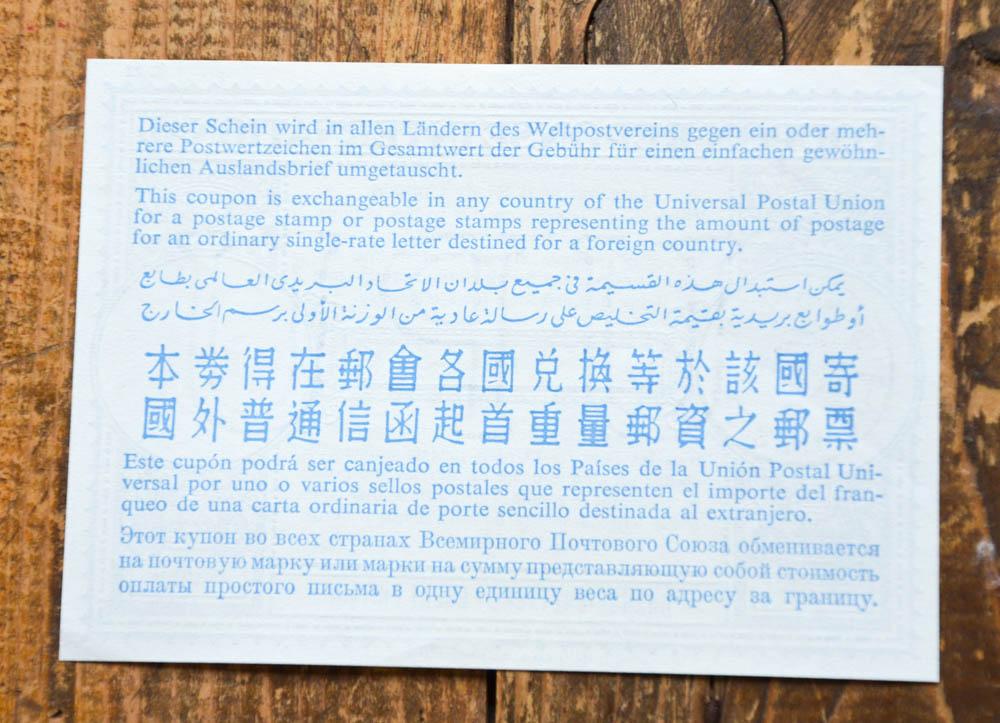 Dieser Schein wird in allen Ländern des Weltpostvereins gegen ein oder meh-
rere Postwertzeichen im Gesamtwert der Gebühr für einen einfachen gewöhn-
lichen Auslandsbrief umgetauscht.
This coupon is exchangeable in any country of the Universal Postal Union
for a postage stamp or postage stamps representing the amount of postage
for an ordinary single-rate letter destined for a foreign country.
يمكن استبدال هذه القسيمة فى جميع بلدان الاتحاد البريدى العالمى بطابع
أو طوابع بريدية بقيمة التخليص على رسالة عادية من الوزنة الأولى برسم الخارج
本券得在郵會各國兌換等於該國寄
國外普通信函起首重量郵資之郵票
Este cupón podrá ser canjeado en todos los Países de la Unión Postal Uni-
versal por uno o varios sellos postales que representen el importe del fran-
queo de una carta ordinaria de porte sencillo destinada al extranjero.
Этот купон во всех странах Всемирного Почтового Союза обменивается
на почтовую марку или марки на сумму представляющую собой стоимость
оплаты простого письма в одну единицу веса по адресу за границу.